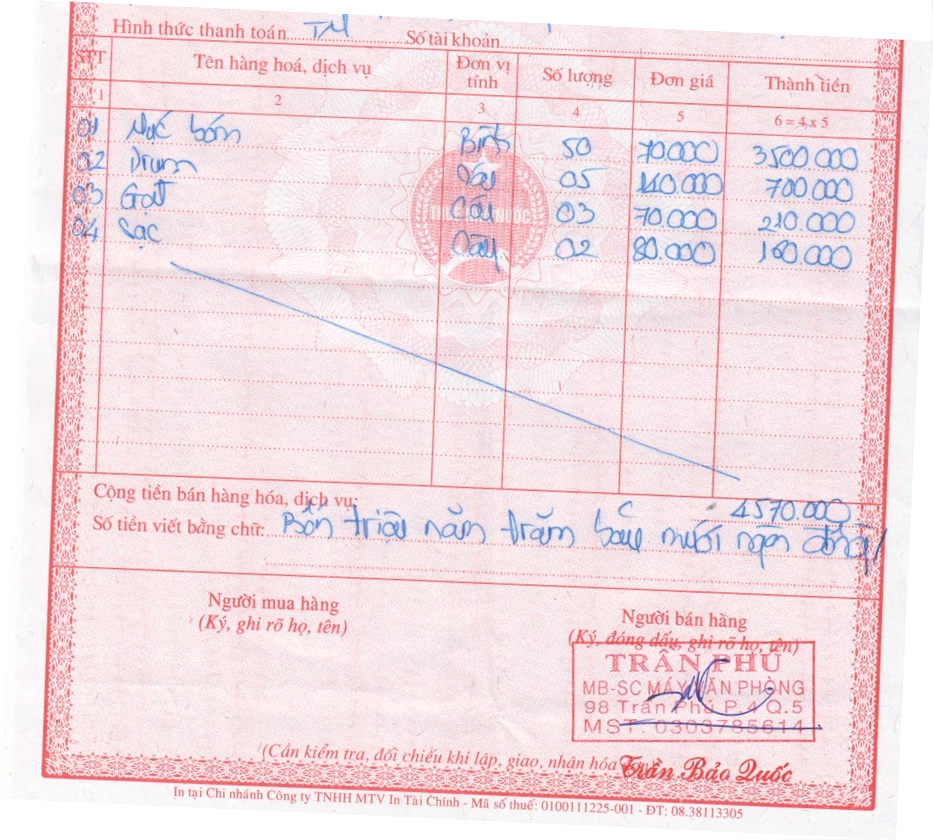 Hình thức thanh toán TM Số tài khoản
STT Tên hàng hoá, dịch vụ Đơn vị tính Số lượng Đơn giá Thành tiền
1 2 3 4 5 6 = 4 x 5
01 Mực bơm Bình 50 70.000 3500.000
02 Drum Cây 05 140.000 700.000
03 Gạt Cái 03 70.000 210.000
04 Sạc Cây 02 80.000 160.000
Cộng tiền bán hàng hóa, dịch vụ: 4570.000
Số tiền viết bằng chữ: Bốn triệu năm trăm bảy mươi ngàn đồng/
Người mua hàng
(Ký, ghi rõ họ, tên)
Người bán hàng
(Ký, đóng dấu, ghi rõ họ, tên)
TRẦN PHÚ
MB-SC MÁY VĂN PHÒNG
98 Trần Phú P.4 Q.5
MST: 0303785614
(Cần kiểm tra, đối chiếu khi lập, giao, nhận hóa
Trần Bảo Quốc
In tại Chi nhánh Công ty TNHH MTV In Tài Chính - Mã số thuế: 0100111225-001 - ĐT: 08.38113305